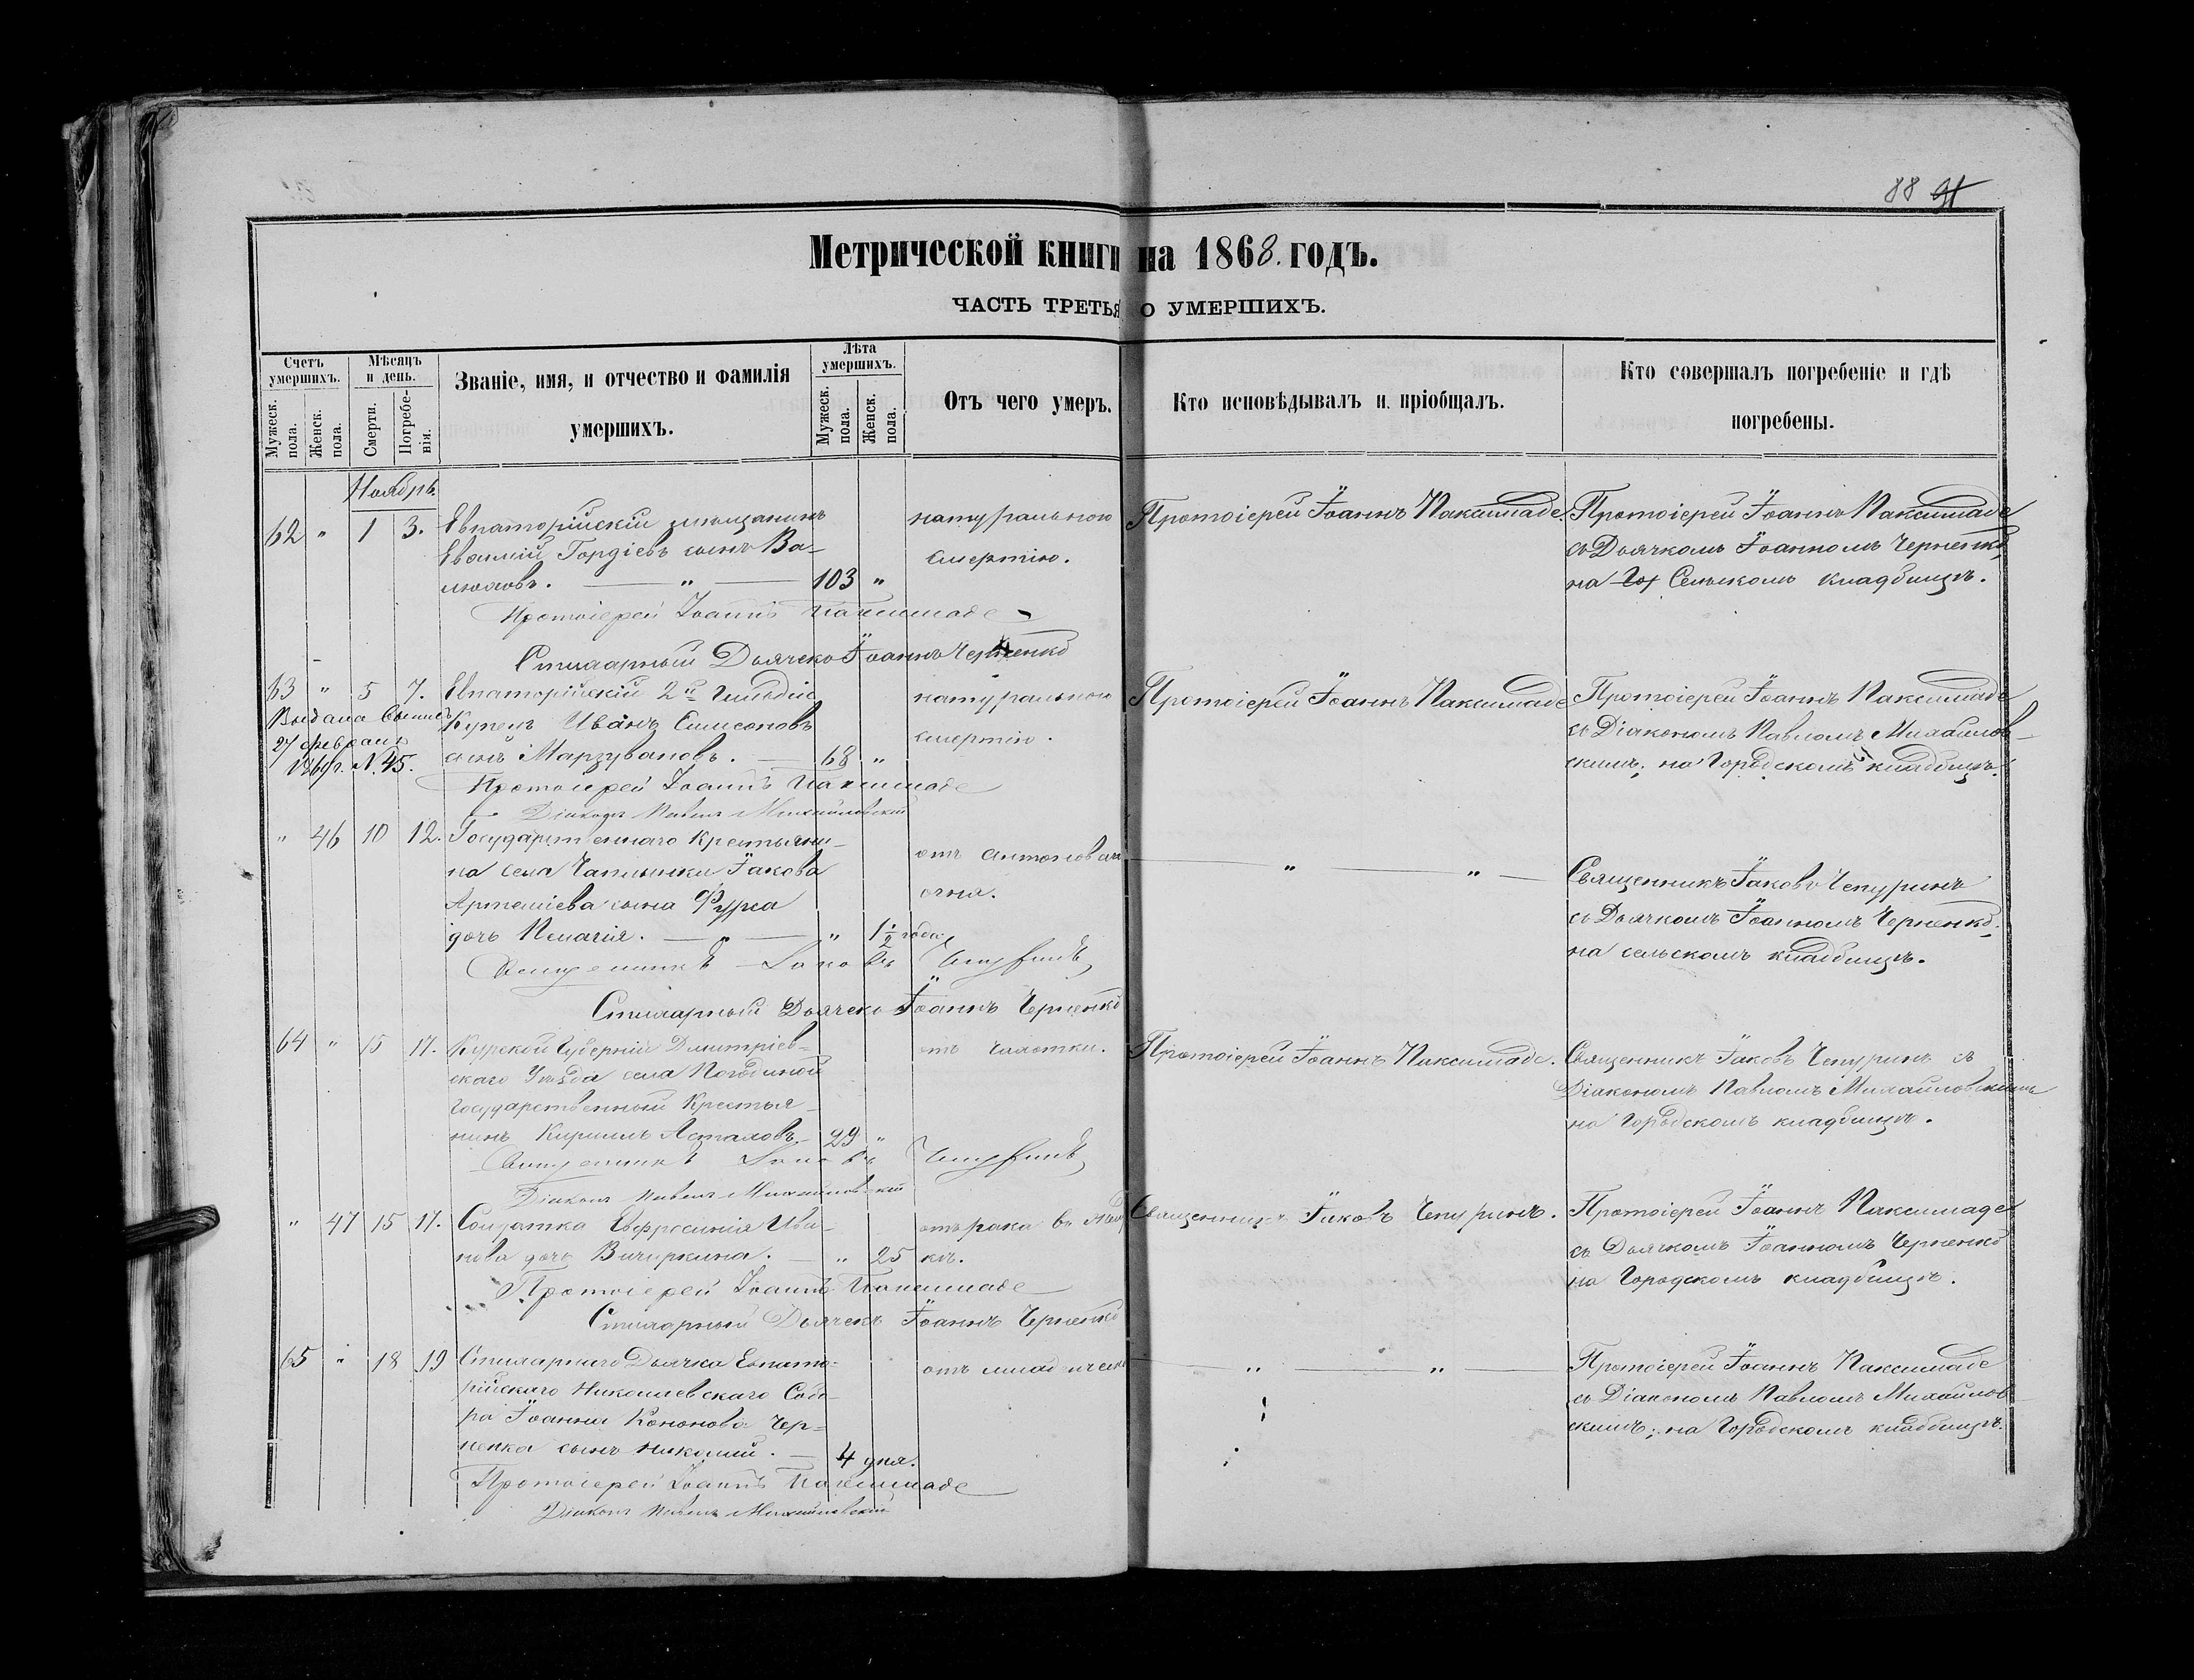 88 91
Метрической книги на 1868. годъ.
ЧАСТЬ ТРЕТЬЯ О УМЕРШИХЪ.
Счетъ умершихъ.
Мужеск. пола.
Женск. пола.
Мѣсяцъ и день.
Смерти.
Погребенія.
Званіе, имя, и отчество и фамилія умершихъ.
Лѣта умершихъ.
Мужеск. пола.
Женск. пола.
Отъ чего умеръ.
Кто исповѣдывалъ и пріобщалъ.
Кто совершалъ погребеніе и гдѣ погребены.
Ноябрь.
62 " 1 3. Евпаторійскій мѣщанинъ натуральною Протоіерей Іоаннъ Паксимаде. Протоіерей Іоаннъ Паксимаде
Гордіевъ сынъ Ва- смертію. съ Дьячкомъ Іоанномъ Черненко,
люховъ. " 103 " на Сельскомъ кладбищѣ.
Протоіерей Іоаннъ Паксимаде
Стихарный Дьячекъ Іоаннъ Черненко
63 " 5 7. Евпаторійскій 2й гильдіи натуральною Протоіерей Іоаннъ Паксимаде Протоіерей Іоаннъ Паксимаде
Выдана Купецъ Иванъ Симеоновъ смертію. съ Діакономъ Павломъ Михайлов-
27 февраля сынъ Марзувановъ. 68 " скимъ; на Городскомъ кладбищѣ.
N. 45.
Протоіерей Іоаннъ Паксимаде
Діаконъ Павелъ Михайловскій
" 46 10 12. Государственнаго крестьяни- отъ антонова " " Священникъ Іаковъ Чепуринъ
на села Чаплынки Іакова огня. съ Дьячкомъ Іоанномъ Черненко,
Артеміева сына Фурса на сельскомъ кладбищѣ.
дочь Пелагія. " " 1 1/2 года
Священникъ Іаковъ Чепуринъ
Стихарный Дьячекъ Іоаннъ Черненко
64 " 15 17. Курской Губерніи Дмитріев- отъ чахотки. Протоіерей Іоаннъ Паксимаде. Священникъ Іаковъ Чепуринъ съ
скаго Уѣзда села Діакономъ Павломъ Михайловскимъ
Государственный Крестья- на Городскомъ кладбищѣ.
нинъ Кириллъ 29 "
Священникъ Іаковъ Чепуринъ
Діаконъ Павелъ Михайловскій
" 47 15 17. Солдатка Евфросинія Ива- отъ рака въ Священникъ Іаковъ Чепуринъ. Протоіерей Іоаннъ Паксимаде
нова дочь Вичиркина. " 25 кѣ. съ Дьячкомъ Іоанномъ Черненко
на Городскомъ кладбищѣ.
Протоіерей Іоаннъ Паксимаде
Стихарный Дьячекъ Іоаннъ Черненко
65 " 18 19 Стихарнаго Дьячка Евпато- отъ " " Протоіерей Іоаннъ Паксимаде
рійскаго Николаевскаго Собо- съ Діакономъ Павломъ Михайлов-
ра Іоанна Кононова Чер- скимъ; на Городскомъ кладбищѣ.
ненка сынъ Николай. 4 дня.
Протоіерей Іоаннъ Паксимаде
Діаконъ Павелъ Михайловскій